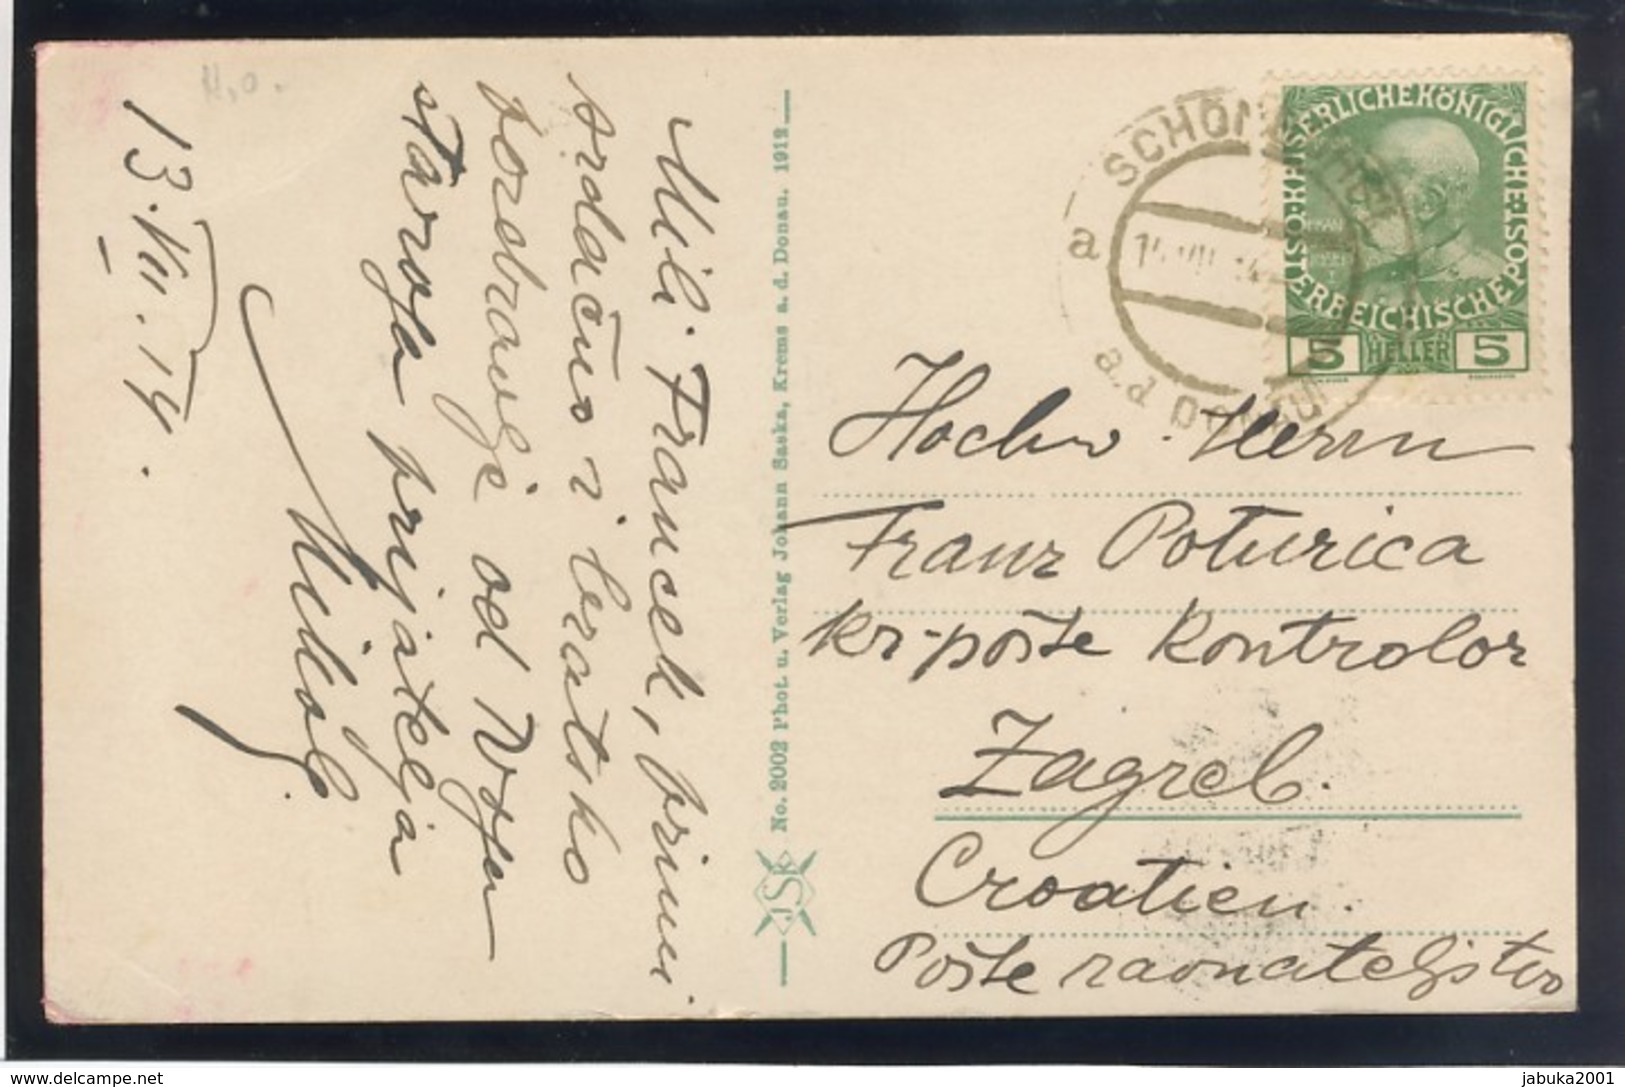 H.o.
Mili Francek, primi
srdačno i bratsko
pozdravlje od Vašega
staroga prijatelja
13.VII.14.
No. 2002 Phot. u. Verlag Johann Saska, Krems a. d. Donau. 1912
JSK
a SCHÖN
14.VII.14
a.d Donau
KAISERLICHE KÖNIGLICHE ÖSTERREICHISCHE POST
5 HELLER 5
Hochw. Herrn
Franz Poturica
kr-pošte kontrolor
Zagreb.
Croatien.
Pošte ravnateljstvo
www.delcampe.net
jabuka2001